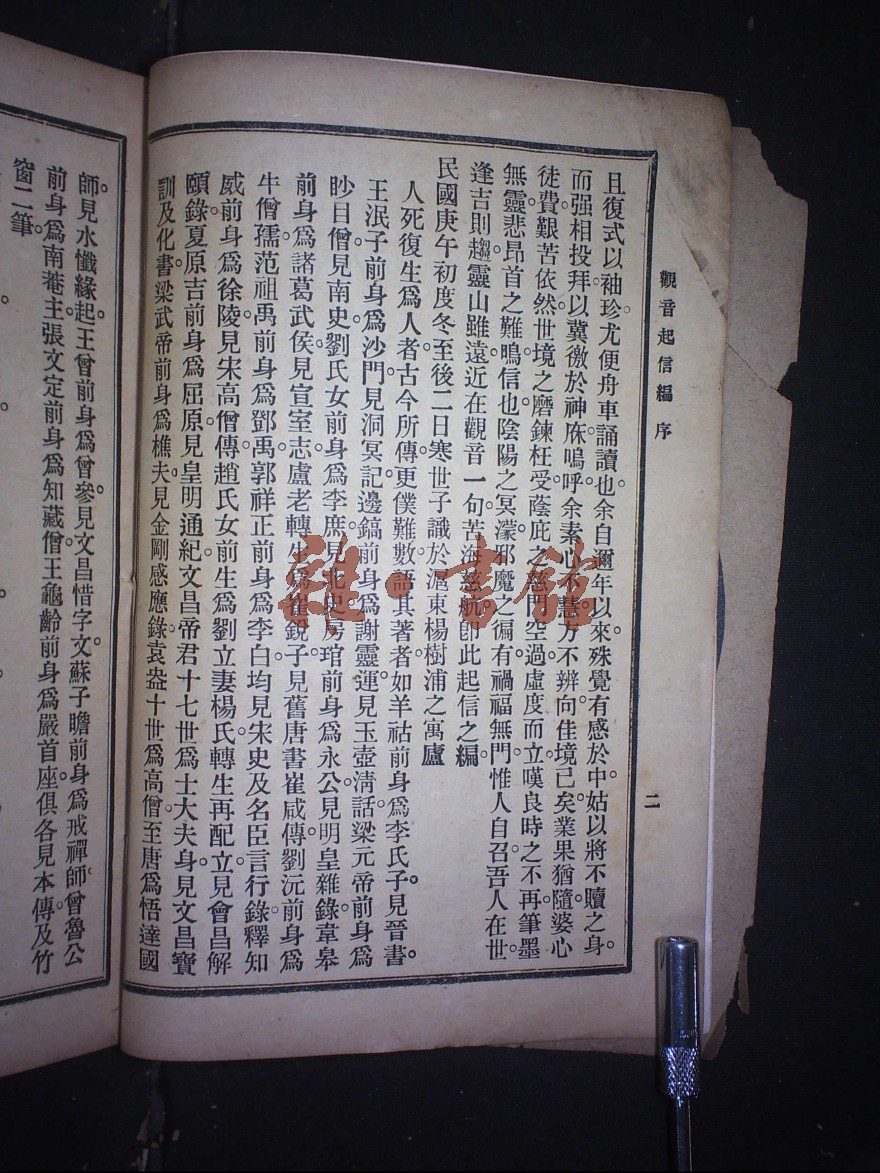 觀音起信編序
二
且復式以袖珍尤便舟車誦讀也。余自邇年以來殊覺有感於中姑以將不贖之身。
而强相投拜以冀徼於神庥嗚呼余素心不慧方不辨向佳境已矣。業果猶隨婆心
徒費艱苦依然世境之磨鍊枉受蔭庇之慈門空過虛度而立嘆良時之不再筆墨
無靈悲昂首之難鳴信也陰陽之冥濛邪魔之徧有禍福無門惟人自召吾人在世
逢吉則趨靈山雖遠近在觀音一句苦海慈航卽此起信之編。
民國庚午初度冬至後二日寒世子識於滬東楊樹浦之寓廬
人死復生爲人者古今所傳更僕難數語其著者如羊祜前身爲李氏子見晉書。
王泯子前身爲沙門見洞冥記邊鎬前身爲謝靈運見玉壺清話梁元帝前身爲
眇目僧見南史劉氏女前身爲李庶見北史房琯前身爲永公見明皇雜錄韋皋
前身爲諸葛武侯見宣室志盧老轉生爲崔銳子見舊唐書崔咸傳劉沅前身爲
牛僧孺范祖禹前身爲鄧禹郭祥正前身爲李白均見宋史及名臣言行錄釋知
威前身爲徐陵見宋高僧傳趙氏女前生爲劉立妻楊氏轉生再配立見會昌解
頤錄夏原吉前身爲屈原見皇明通紀文昌帝君十七世爲士大夫身見文昌寶
訓及化書梁武帝前身爲樵夫見金剛感應錄袁盎十世爲高僧至唐爲悟達國
師見水懺緣起王曾前身爲曾參見文昌惜字文蘇子瞻前身爲戒禪師曾魯公
前身爲南菴主張文定前身爲知藏僧王龜齡前身爲嚴首座俱各見本傳及竹
窗二筆
雜·書館